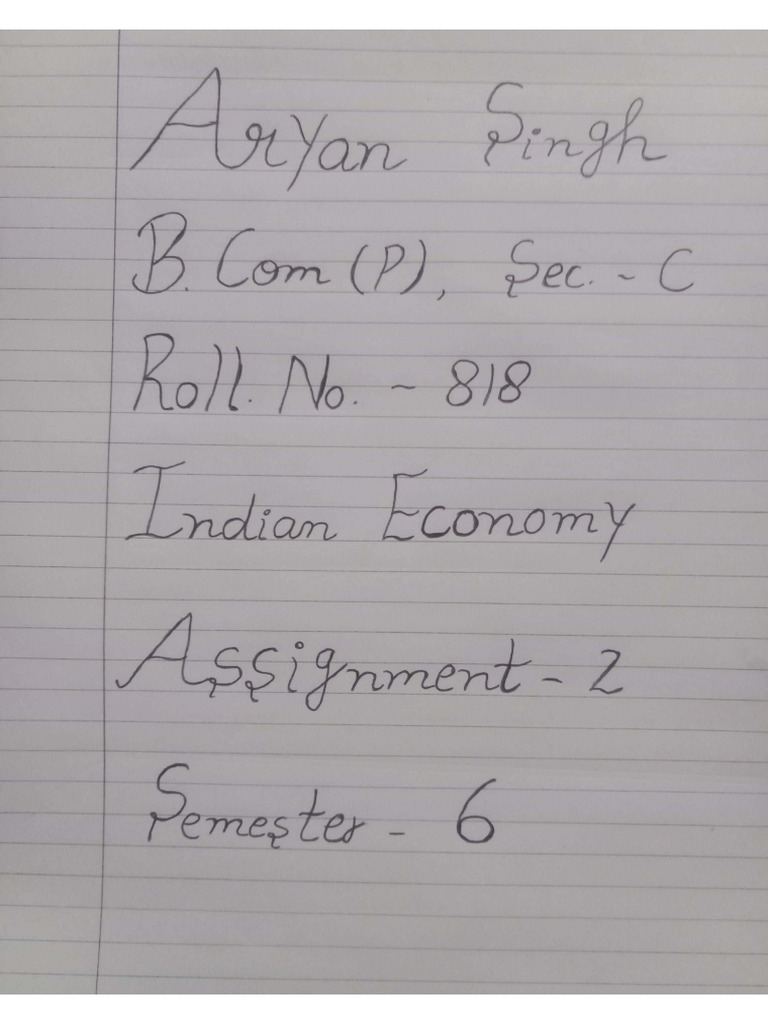 Aryan Singh
B. Com (P), Sec. - C
Roll. No. - 818
Indian Economy
Assignment - 2
Semester - 6